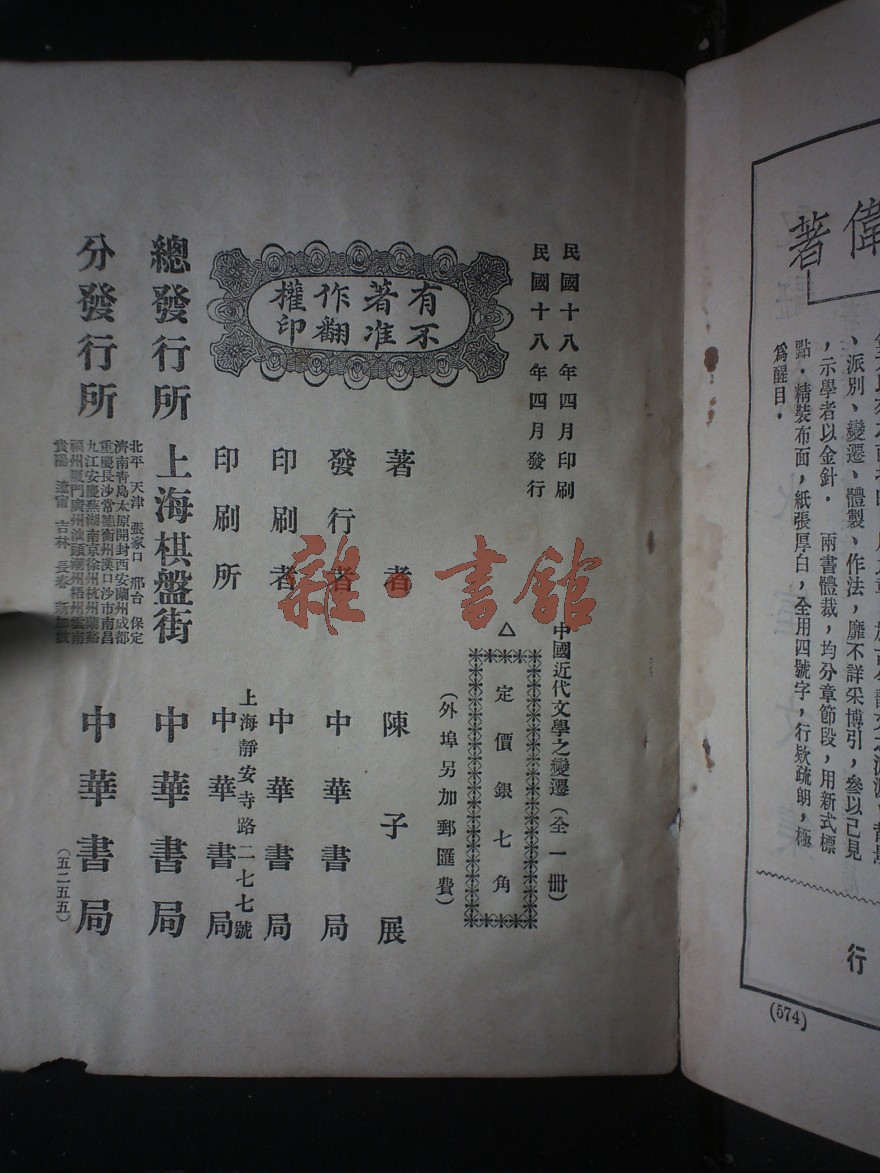 偉
著
、派別、變遷、體製、作法，靡不詳采博引，參以己見
，示學者以金針． 兩書體裁，均分章節段，用新式標
點．精裝布面，紙張厚白，全用四號字，行欵疏朗，極
爲醒目．
行
(574)
民國十八年四月印刷
民國十八年四月發行
中國近代文學之變遷（全一冊）
△
定價銀七角
（外埠另加郵匯費）
有著作權
不准翻印
著者 陳子展
發行者 中華書局
印刷者 中華書局
上海靜安寺路二七七號
印刷所 中華書局
總發行所 上海棋盤街 中華書局
分發行所 中華書局
北平 天津 張家口 邢台 保定
濟南青島太原開封西安蘭州成都
重慶長沙常德衡州漢口沙市南昌
九江安慶蕪湖南京徐州杭州蘭谿
福州廈門廣州汕頭潮州梧州雲南
貴陽 遼寧 吉林 長春 新加坡
（五二五五）
雜·書館